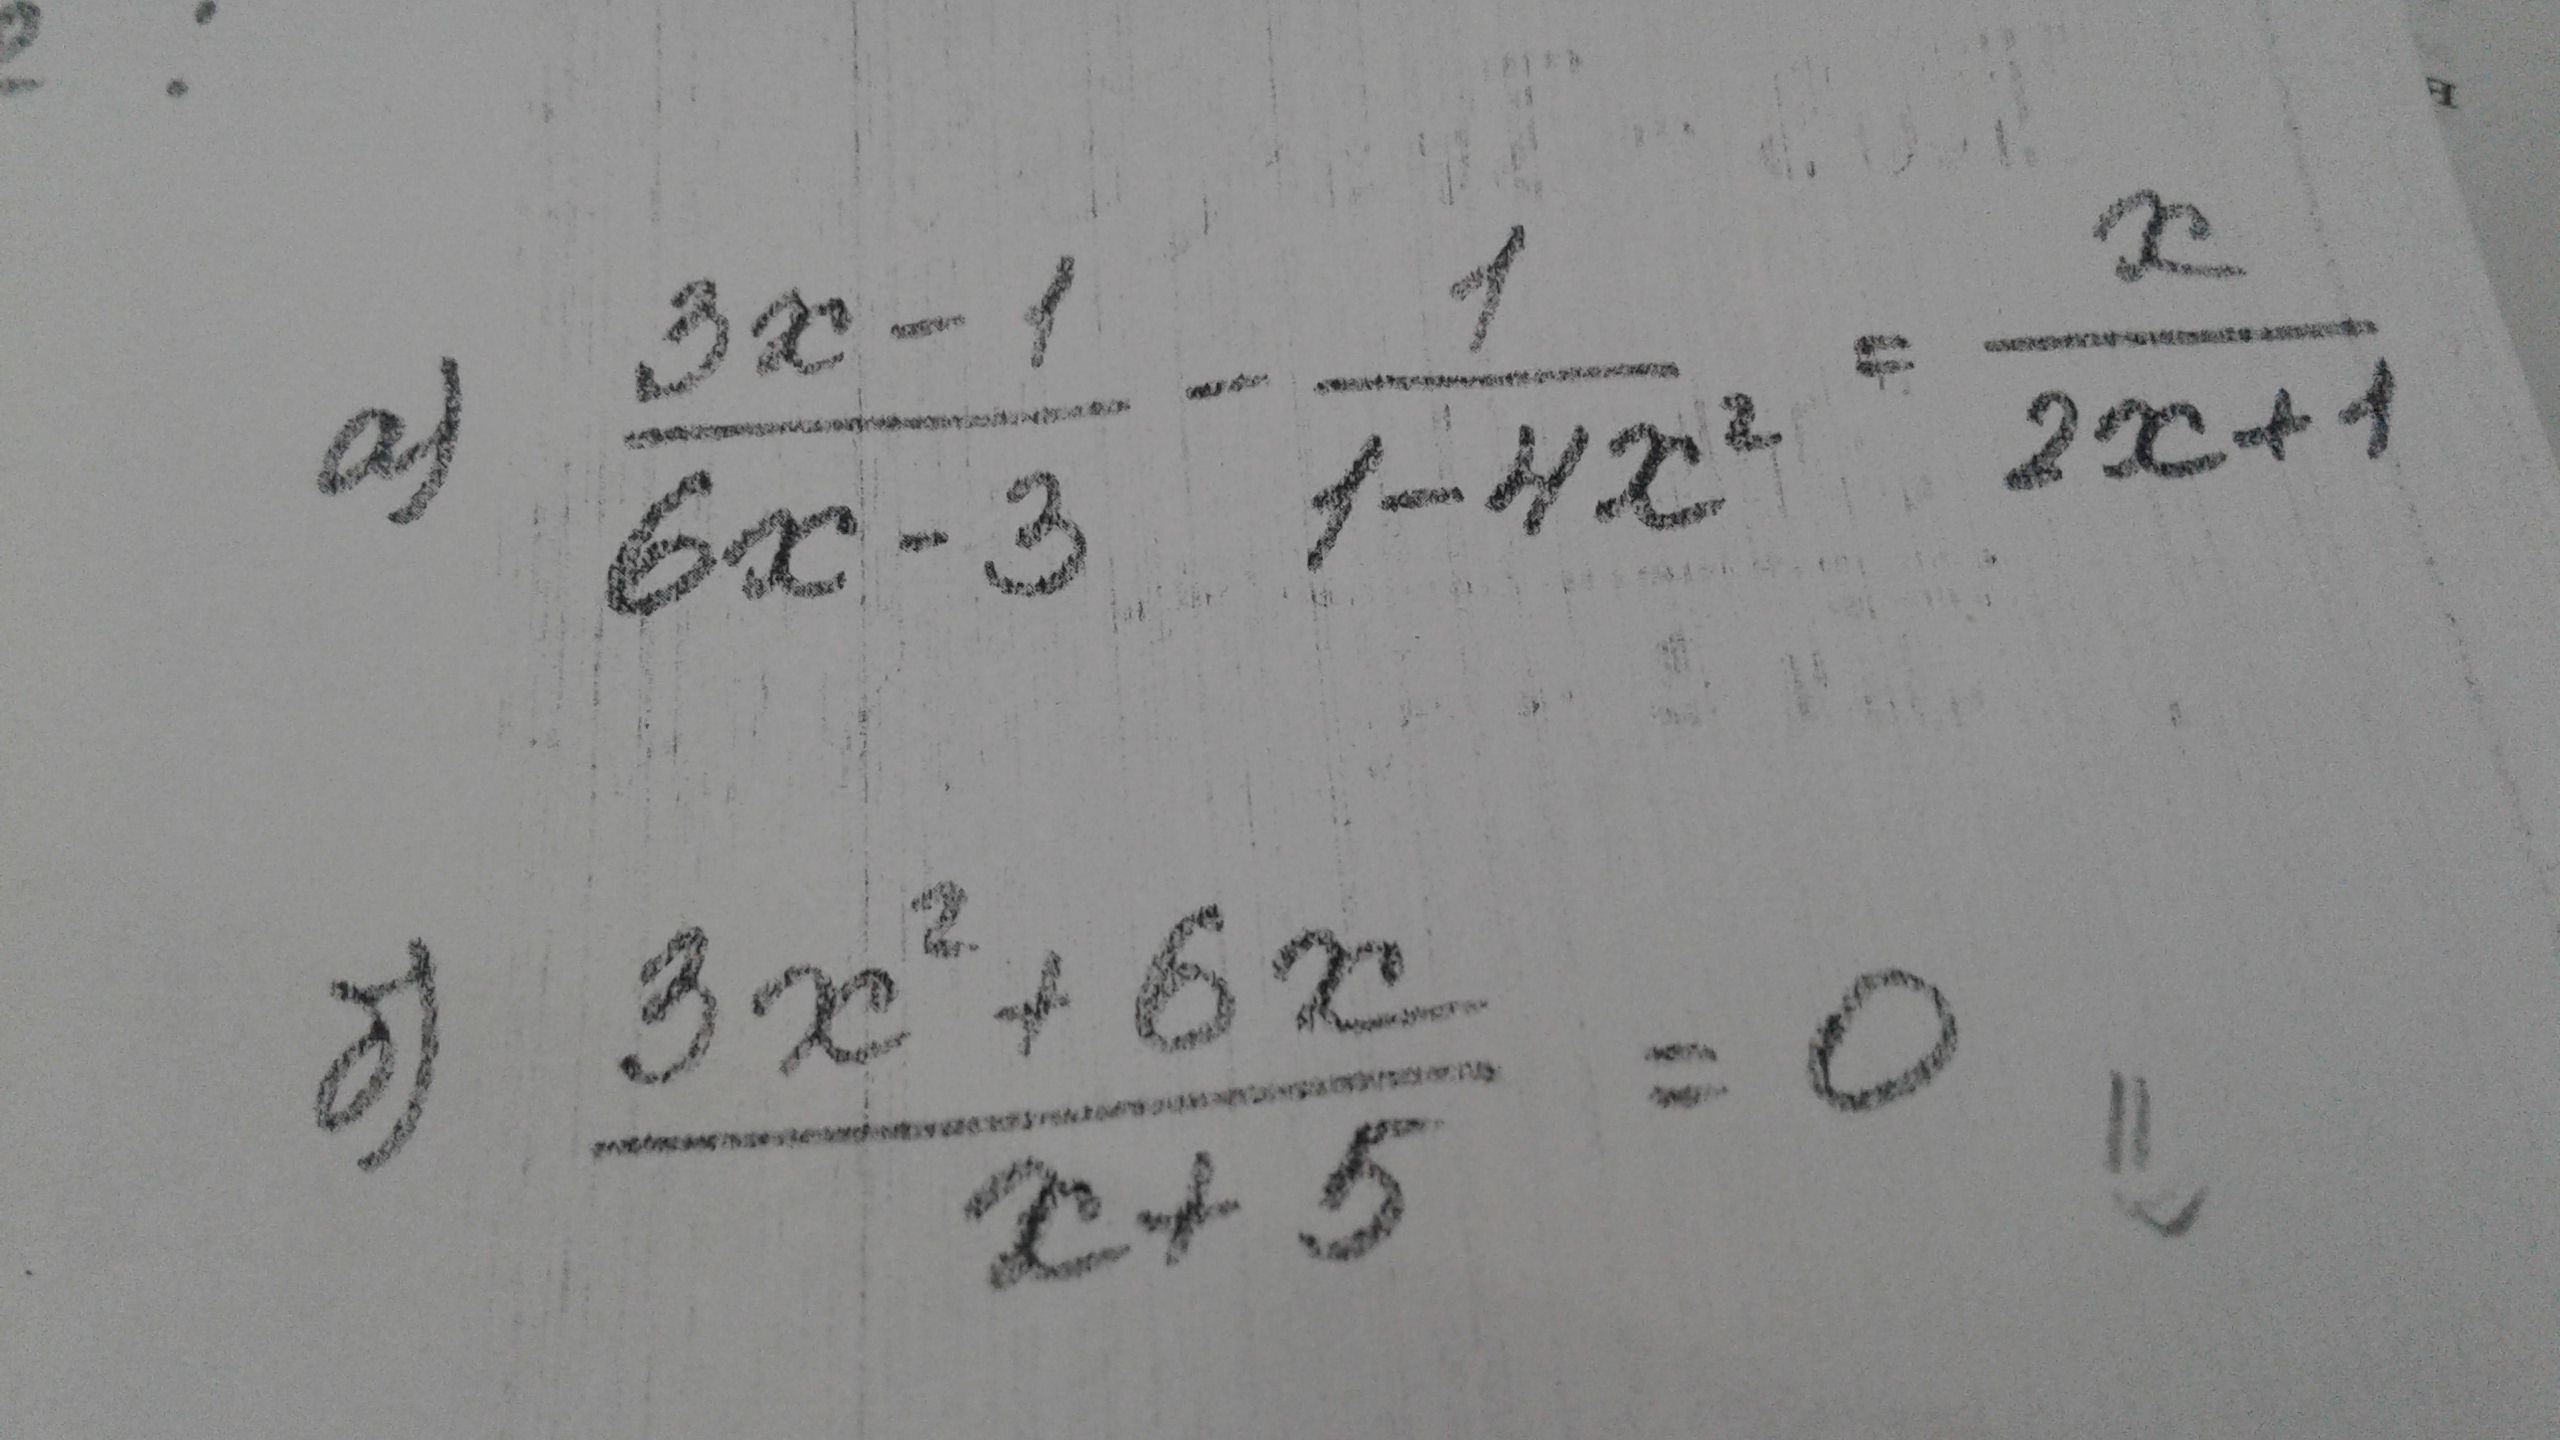 2 :
а) (3x - 1)/(6x - 3) - 1/(1 - 4x²) = x/(2x + 1)
б) (3x² + 6x)/(x + 5) = 0 ⇓